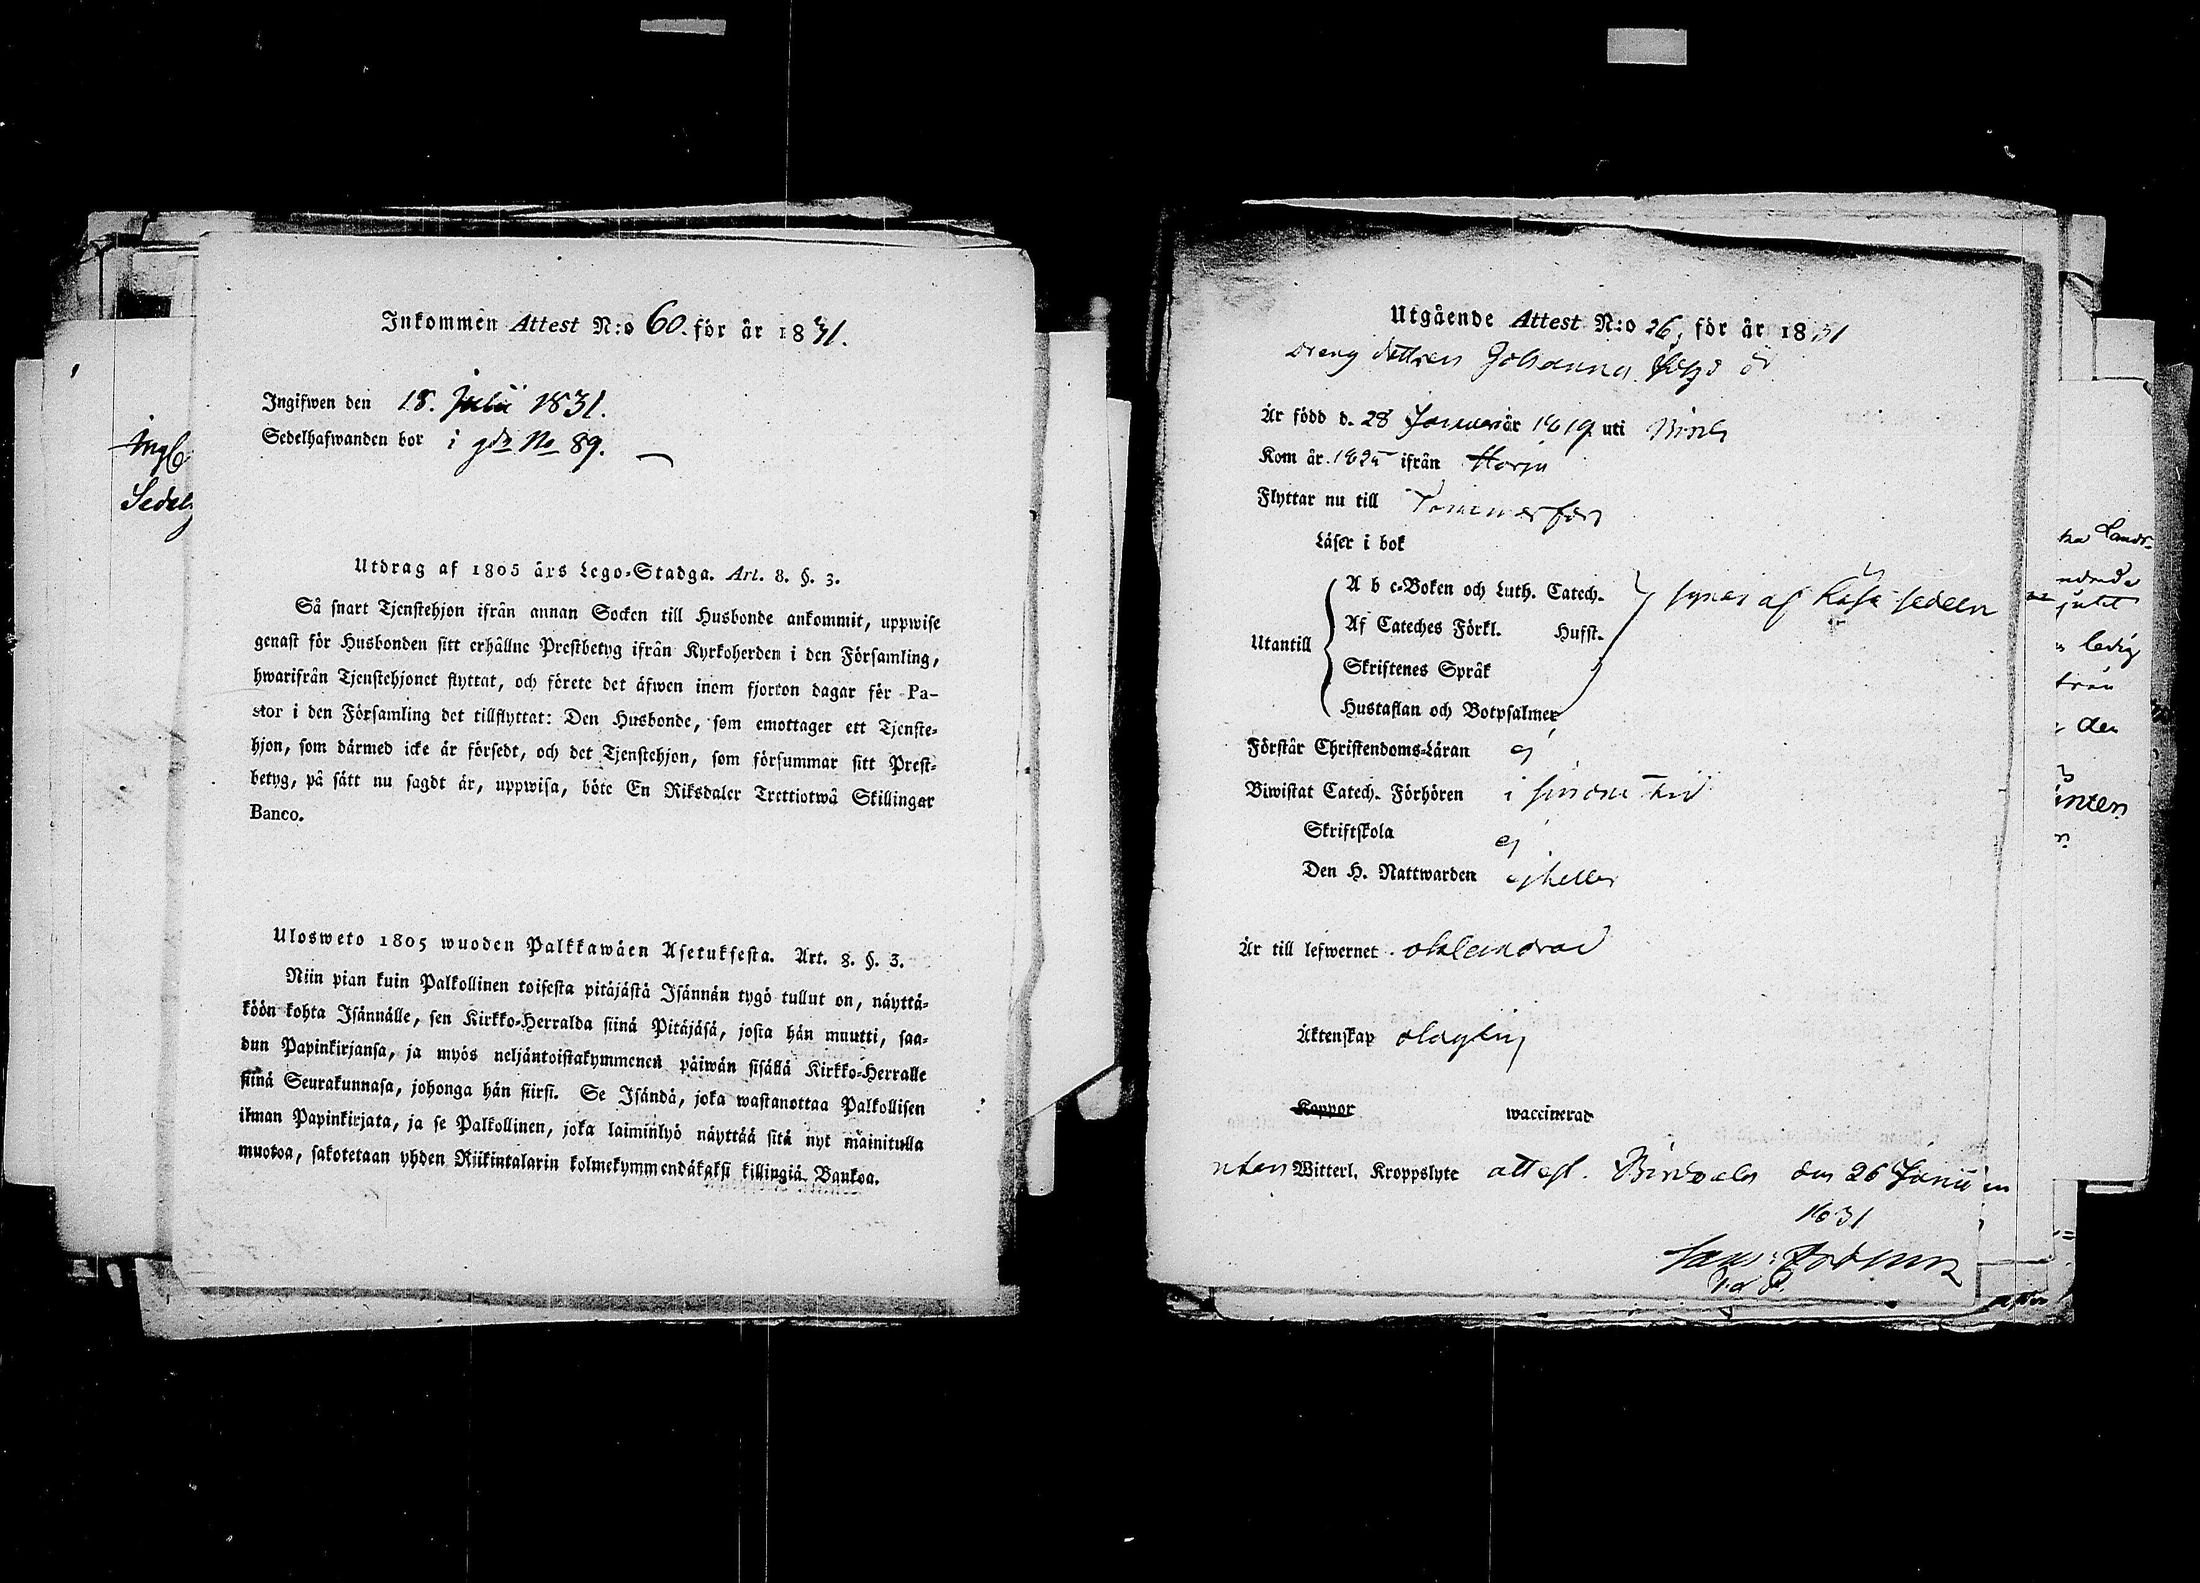 Inkommen Attest N:o 60. för år 1831.
Ingifwen den 18. Julii 1831.
Sedelhafwanden bor i gdn No 89.
Utdrag af 1805 års Lego-Stadga. Art. 8. §. 3.
Så snart Tjenstehjon ifrån annan Socken till Husbonde ankommit, uppwise
genast för Husbonden sitt erhållne Prestbetyg ifrån Kyrkoherden i den Församling,
hwarifrån Tjenstehjonet flyttat, och förete det äfwen inom fjorton dagar för Pa-
stor i den Församling det tillflyttat: Den Husbonde, som emottager ett Tjenste-
hjon, som därmed icke är försedt, och det Tjenstehjon, som försummar sitt Prest-
betyg, på sätt nu sagdt är, uppwisa, böte En Riksdaler Trettiotwå Skillingar
Banco.
Ulosweto 1805 wuoden Palkkawäen Asetuksesta. Art. 8. §. 3.
Niin pian kuin Palkollinen toisesta pitäjästä Isännän tygö tullut on, näyttä-
köön kohta Isännälle, sen Kirkko-Herralda siinä Pitäjäsä, josta hän muutti, saa-
dun Papinkirjansa, ja myös neljäntoistakymmenen päiwän sisällä Kirkko-Herralle
siinä Seurakunnasa, johonga hän siirsi. Se Isändä, joka wastanottaa Palkollisen
ilman Papinkirjata, ja se Palkollinen, joka laiminlyö näyttää sitä nyt mainitulla
muotoa, sakotetaan yhden Riikintalarin kolmekymmendäkaksi killingiä Bankoa.
Utgående Attest N:o 26, för år 1831
Dreng Johannes
Är född d. 28 Januari år 1819 uti
Kom år 1825 ifrån
Flyttar nu till Tammerfors
Läser i bok
A b c-Boken och Luth. Catech.
Af Cateches Förkl. Husst.
Utantill
synes af Läse sedeln
Skriftenes Språk
Hustaflan och Botpsalmer
Förstår Christendoms-Läran ej
Biwistat Catech. Förhören i sinom tid
Skriftskola ej
Den H. Nattwarden ej heller
Är till lefwernet oklandrad
Äktenskap olaglig
Koppor waccinerad
utan Witterl. Kroppslyte attest. Birkala den 26 Junii
1831